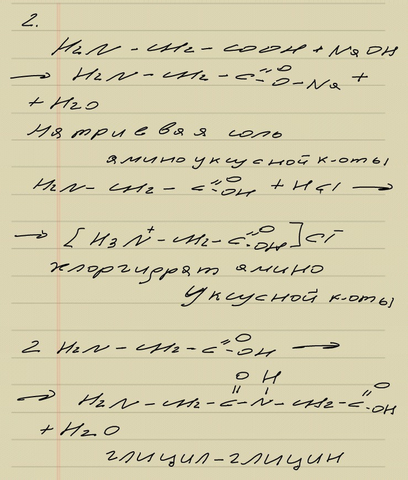 2.
H₂N - CH₂ - COOH + NaOH
→ H₂N - CH₂ - C=O-O-Na +
+ H₂O
Натриевая соль
аминоуксусной к-оты
H₂N - CH₂ - C=O-OH + HCl →
→ [H₃N⁺ - CH₂ - C=O-OH]Cl⁻
хлоргидрат амино
уксусной к-оты
2 H₂N - CH₂ - C=O-OH →
O H
→ H₂N - CH₂ - C - N - CH₂ - C=O-OH
+ H₂O
глицил-глицин